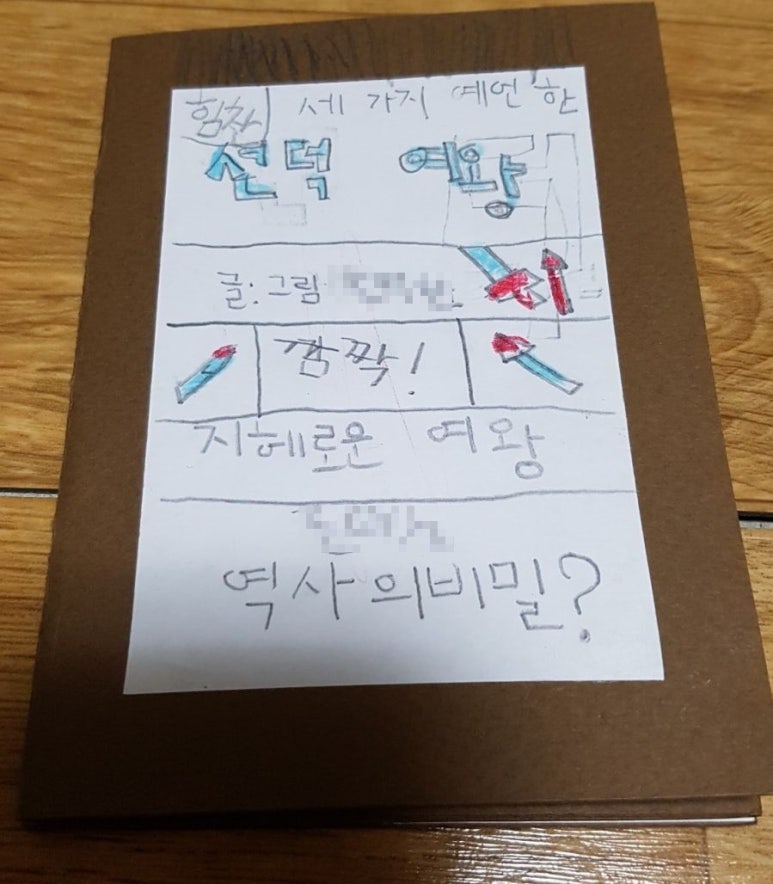 힘찬 세 가지 예언 한
선덕 여왕
글:그림
깜짝!
지혜로운 여왕
역사의비밀?